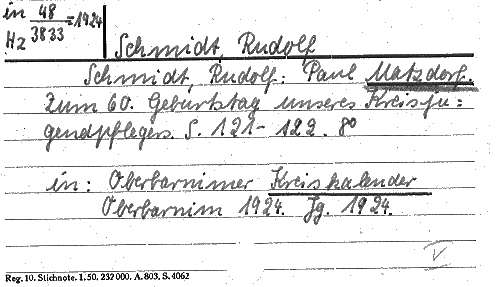 in 48/3833=1924
Hz
Schmidt, Rudolf
Schmidt, Rudolf: Paul Matzdorf.
Zum 60. Geburtstag unseres Kreisju=
gendpflegers. S. 121-122. 8°
in: Oberbarnimer Kreiskalender
Oberbarnim 1924. Jg. 1924.
V
Reg. 10. Stichnote. 1. 50. 232000. A. 803. S. 4062